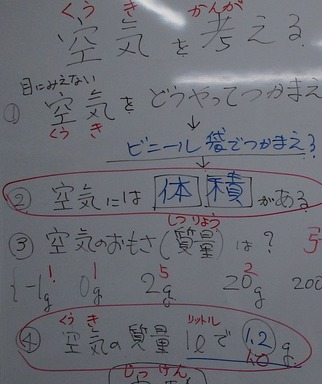 くう き かんが
空気を考える
目にみえない
① 空気をどうやってつかまえ
くう き
↓
ビニール袋でつかまえる
↓
② 空気には体積がある
しつりょう
③ 空気のおもさ(質量)は?
1 1 5 2
{-1g 0g 2g 20g 200
くう き リットル
④ 空気の質量 1ℓで 1.2 g
じっけん